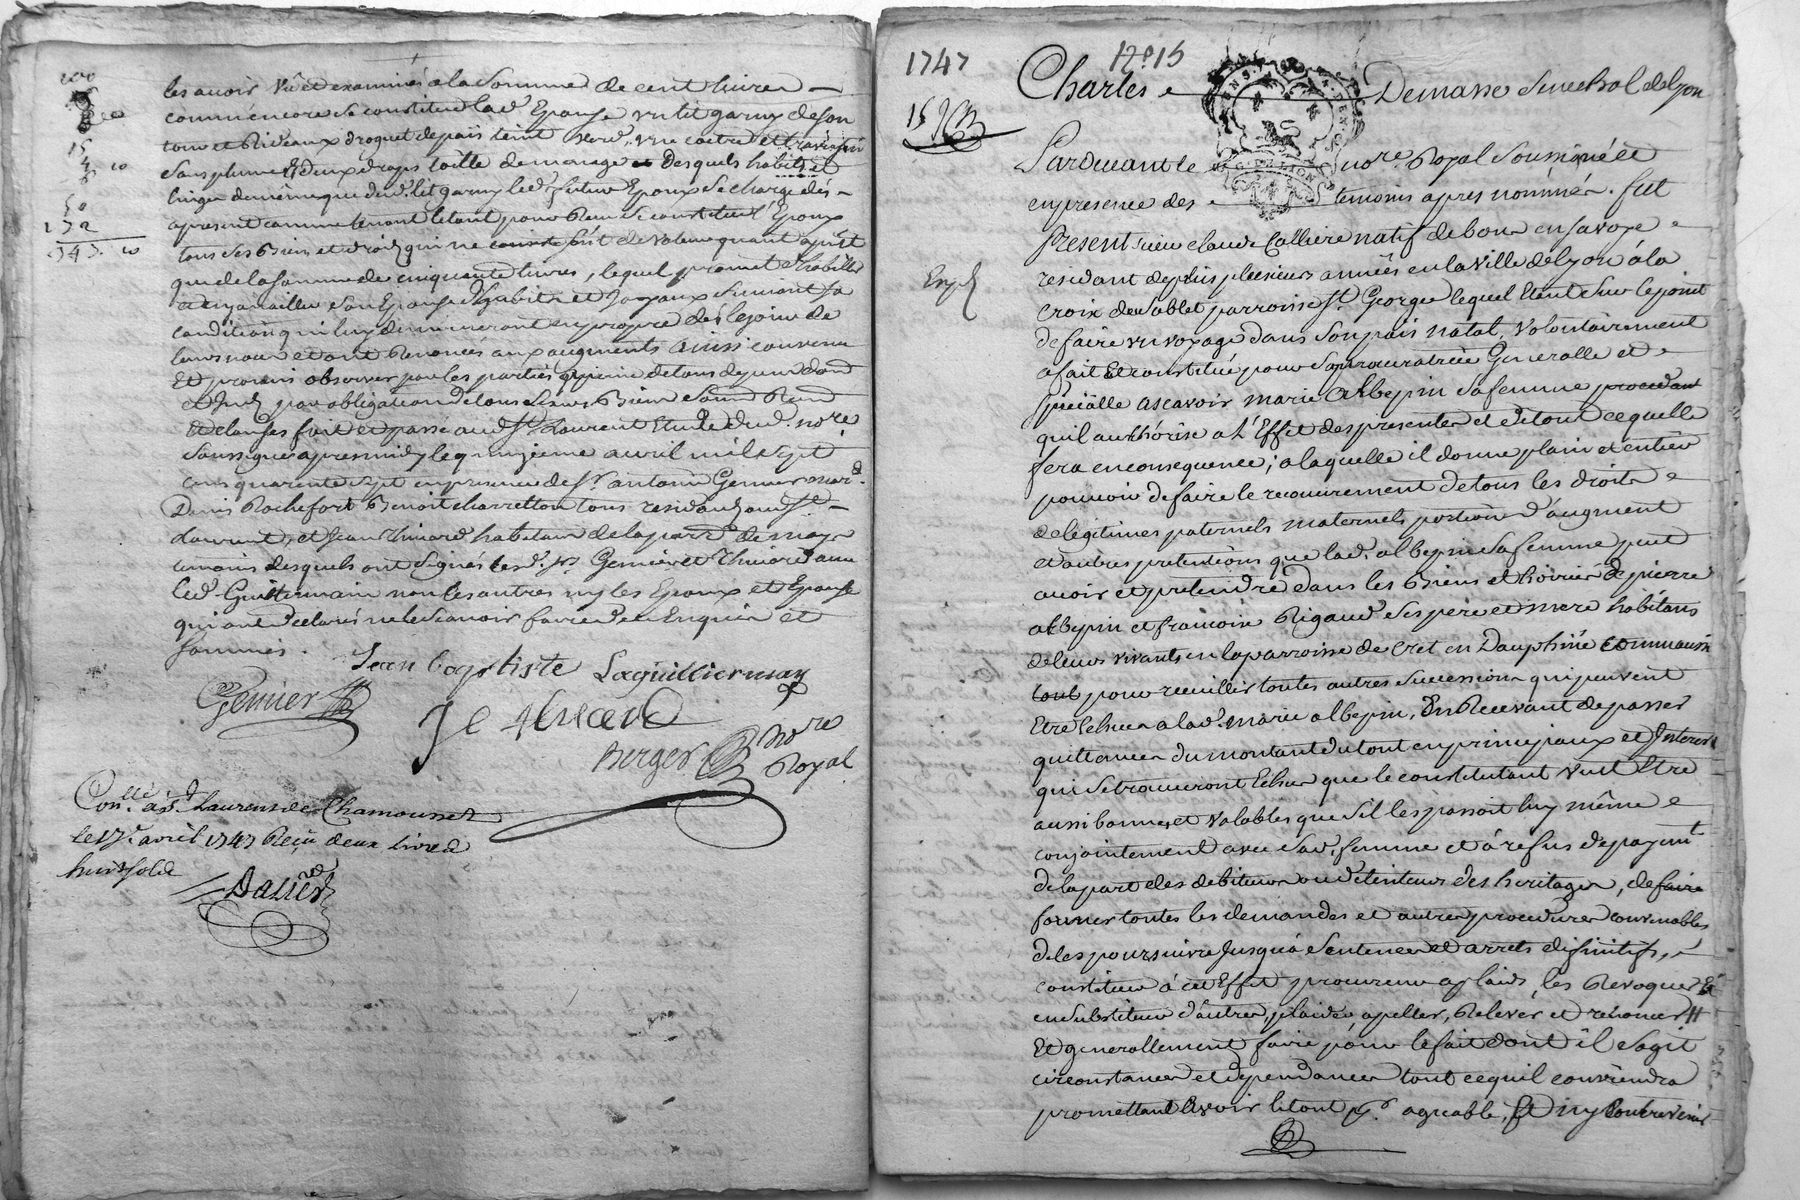 les avoir vû et examinés a la somme de cent livres
comme encore se constitue lad. Epouse un lit garny de son
tour et Rideaux droguet de païs teint verd, une coitre et traversin
sans plume & deux draps toille de menage desquels habits et
linges de même que dud. lit garny led. futur Epoux se charge dés
apresent comme tenant le tout pour Reçu se constitue l'Epoux
tous ses Biens et droits qui ne sont de valeur quant apñt
que de la somme de cinquante livres, lequel promet d'habiller
et enjoailler son Epouse d'habits et Joyaux suivant sa
condition qui luy demeureront en propre dés le jour de
leurs noces et ont Renoncés aux augments ainsi convenu
Et promis observer par les parties a peine de tous depens dom
et Inth par obligation de tous leurs Biens soum Renon
et clauses fait et passé aud. St Laurent Etude dud. nore
soussigné apres midy le quinzieme avril mil sept
cens quarente sept en presence de Sr antoine Genier mard.
Denis Rochefort Benoit charretton tous residants aud. St
Laurent, et Jean thivard habitant de la parr. de
temoins desquels ont signés lesd. Srs Genier et Thivard avec
led. Guillermain non les autres ny les Epoux et Epouse
qui ont declarés ne le sçavoir faire de ce Enquis et
sommés.
Jean baptiste Laguilliermain
Genier
Je thivard
Berger Nore
Royal
Conllé a St. Laurens de Chamousset
le 17e. avril 1747 Reçu deux livres
huit sols
Dasier
200
15
4 10
50
1747
no 15
15
Exp
Charles Demasse Senechal de Lyon
Pardevant le nore. Royal soussigné et
en presence des temoins apres nommés. fut
present sieur claude Calliere natif de bour en savoye
residant depuis plusieurs années en la ville de lyon à la
croix du sablet parroisse St. George lequel etant sur le point
de faire un voyage dans son païs natal, volontairement
a fait et constitué pour sa procuratrice Generalle et
speciälle ascavoir marie albepin sa femme procedant
quil authorise a l'Effet des presentes et de tout ce quelle
fera en consequence; a laquelle il donne plain et entier
pouvoir de faire le recouvrement de tous les droits
de legitimes paternels maternels portion d'augment
et autres pretentions que lad. albepin sa femme peut
avoir et pretendre dans les Biens et hoiries de pierre
albepin et francoise Rigaud ses pere et mere habitans
de leurs vivants en la parroisse de cret en Dauphiné comm aussi
tout pour recuillir toutes autres successions qui peuvent
Etre Echues a lad. marie albepin, En Recevant de passer
quittances du montant du tout en principaux et Interest
qui se trouveront Echus que le constituant veut Etre
aussi bonnes et valables que sil les passoit luy même
conjointement avec sad. femme et à refus de payemt
de la part des debiteurs ou detenteurs des heritages, de faire
former toutes les demandes et autres procedures convenables
de les poursuivre Jusquà sentences et arrets difinitifs,
constituer à cet Effet procureurs a plaids, les Revoquer Et
en substituer d'autres, plaider apeller, Relever et renoncer
Et generallement faire pour le fait dont il sagit
circonstances et dependances tout ce quil conviendra
promettant avoir le tout pr. agreable, Et n'y Contrevenir